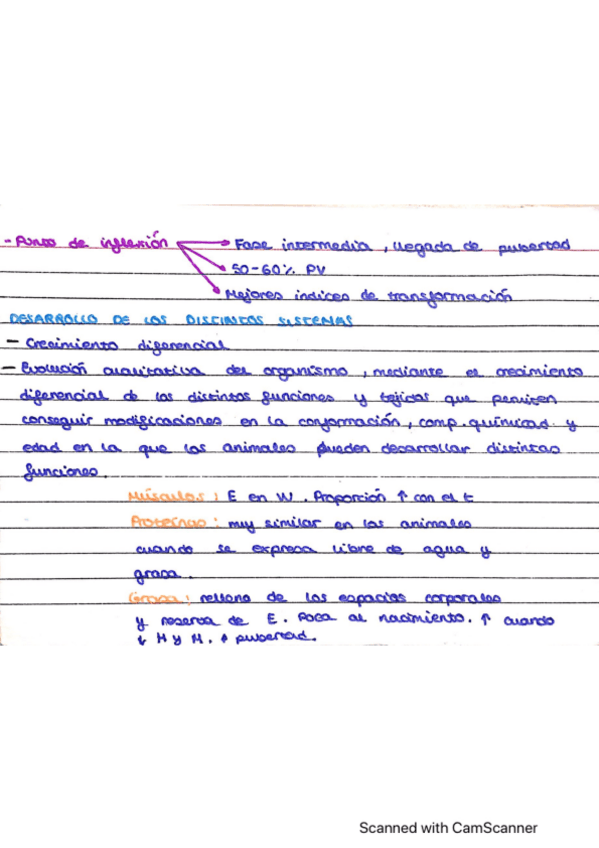 - Punto de inflexión → Fase intermedia, llegada de pubertad
→ 50-60% PV
→ Mejores indices de transformación
DESARROLLO DE LOS DISTINTOS SISTEMAS
- Crecimiento diferencial
- Evolución cualitativa del organismo, mediante el crecimiento
diferencial de las distintas funciones y tejidos que permiten
conseguir modificaciones en la conformación, comp. químicas y
edad en la que los animales pueden desarrollar distintas
funciones.
Músculos: E en W. Proporción ↑ con el t
Proteínas: muy similar en los animales
cuando se expresa libre de agua y
grasa.
Grasa: relleno de los espacios corporales
y reserva de E. Poca al nacimiento. ↑ cuando
↓ H y M. ↑ pubertad.
Scanned with CamScanner